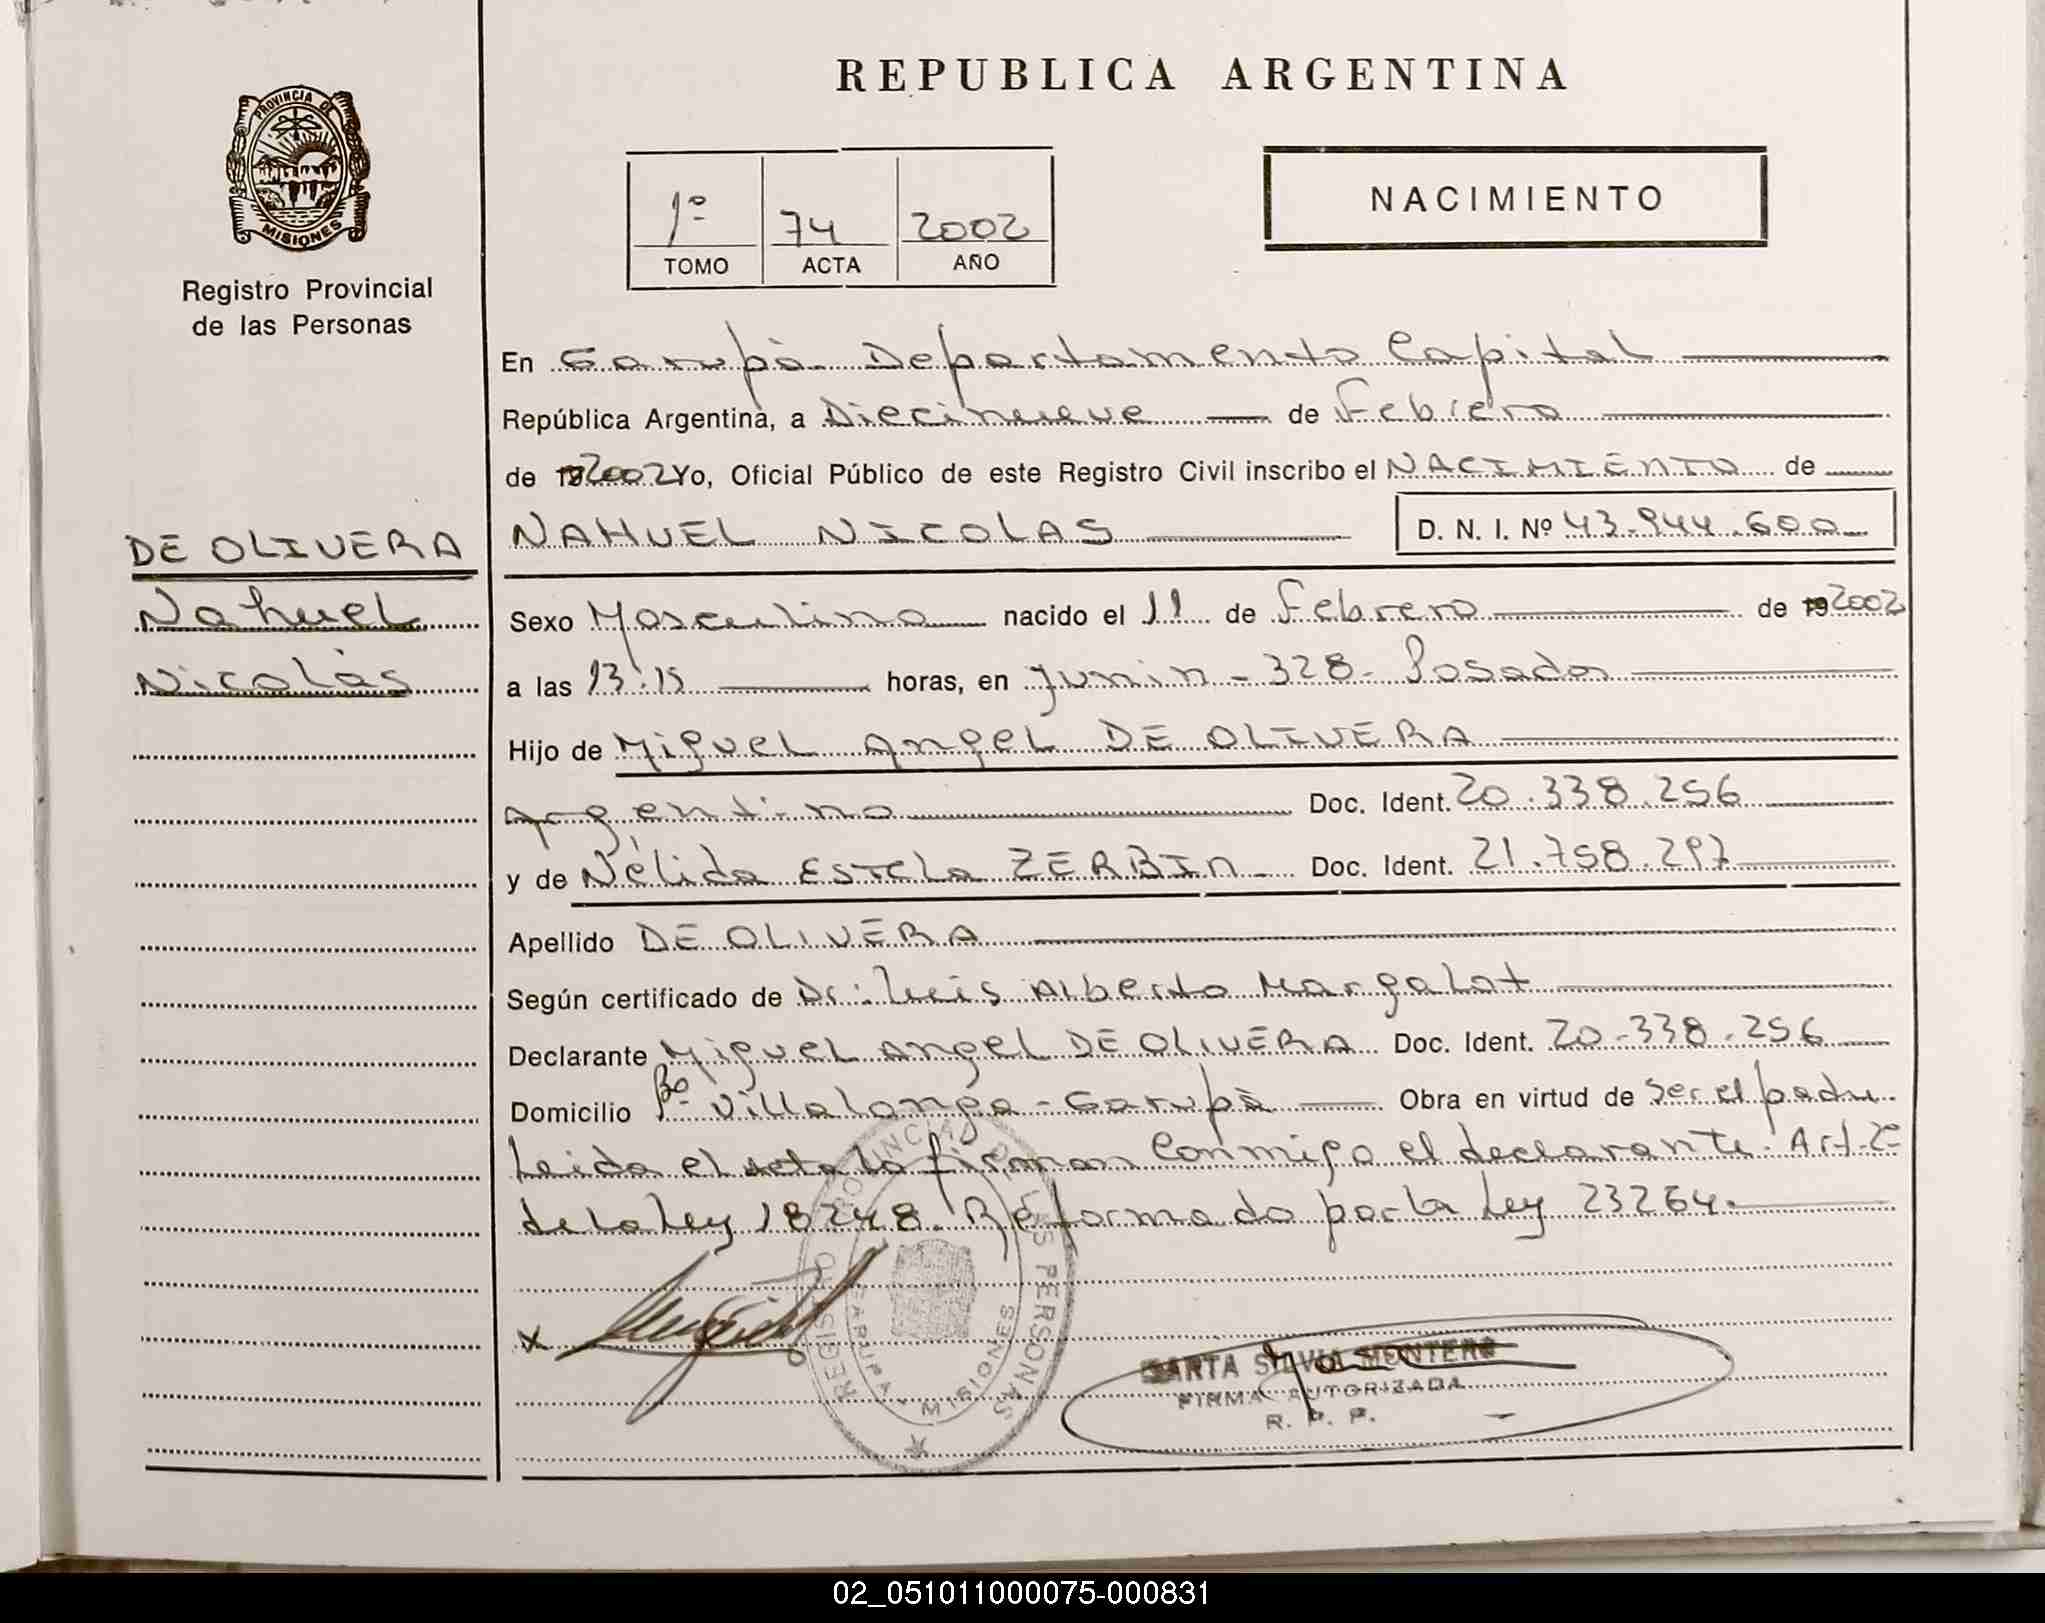 REPUBLICA ARGENTINA
PROVINCIA DE
MISIONES
Registro Provincial
de las Personas
1º 74 2002
TOMO ACTA AÑO
NACIMIENTO
En Garupà Departamento Capital
República Argentina, a Diecinueve de Febrero
de 192002 Yo, Oficial Público de este Registro Civil inscribo el NACIMIENTO de
DE OLIVERA
Nahuel
Nicolàs
NAHUEL NICOLAS D. N. I. Nº 43.944.600
Sexo Masculino nacido el 11 de Febrero de 192002
a las 13:15 horas, en Junin - 328 - Posadas
Hijo de Miguel Angel DE OLIVERA
Argentino Doc. Ident. 20.338.256
y de Nélida Estela ZERBIN Doc. Ident. 21.758.297
Apellido DE OLIVERA
Según certificado de Dr: Luis Alberto Margalot
Declarante Miguel Angel DE OLIVERA Doc. Ident. 20-338.256
Domicilio Bº Villalonga - Garupà Obra en virtud de ser el padre.
Leida el acta la firman conmigo el declarante. Art. 2º
de la Ley 18248. Reformado por la Ley 23264.
x
REGISTRO PROVINCIAL DE LAS PERSONAS
GARUPA - MISIONES
SILVIA MONTERO
FIRMA AUTORIZADA
R. P. P.
02_051011000075-000831